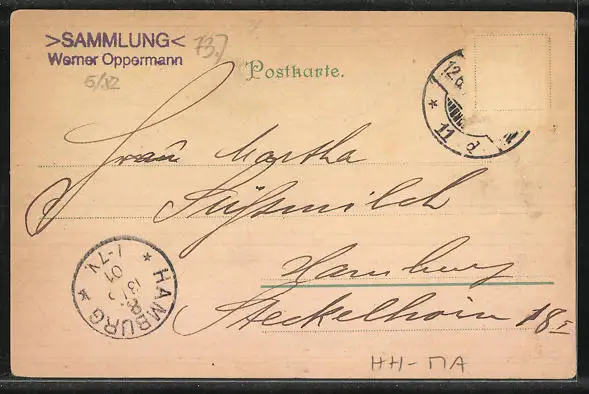 >SAMMLUNG<
Werner Oppermann
73.7
5/32
Postkarte.
12.6
11 d
Frau Martha
Süssmilch
Hamburg
Steckelhörn 18 I
HAMBURG
* 8 *
13
01
1-7 N.
HH-MA